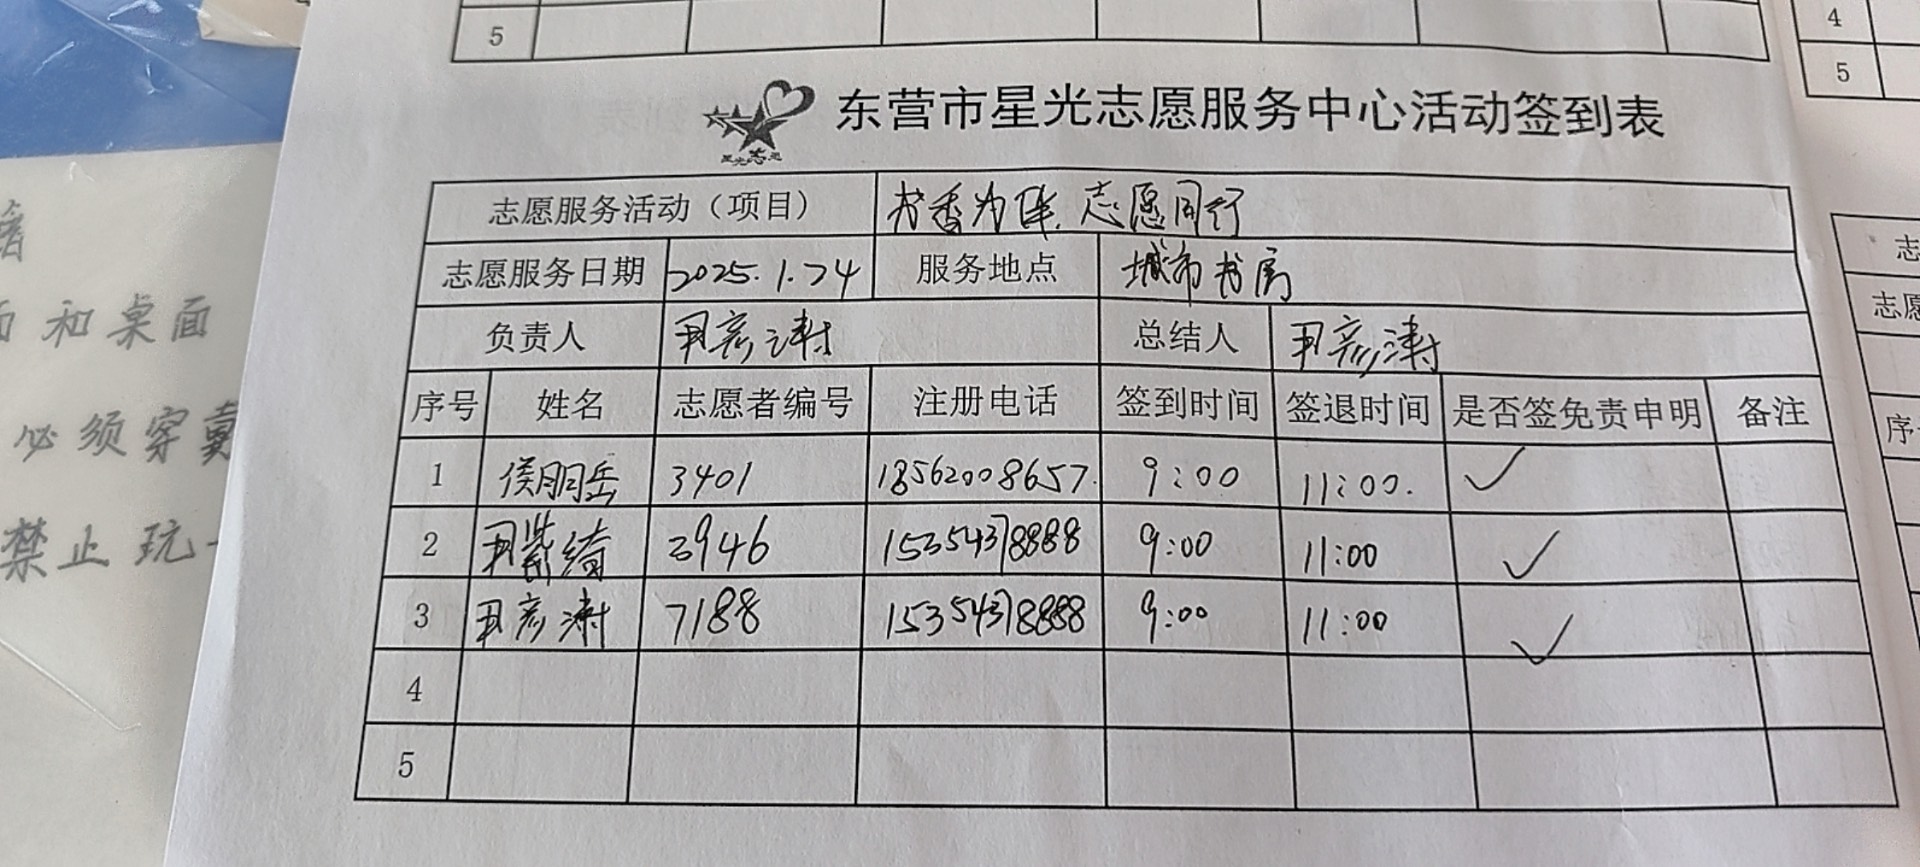 5
4
5
星光志愿
东营市星光志愿服务中心活动签到表
志愿服务活动（项目） 书香为伴,志愿同行
志愿服务日期 2025.1.24 服务地点 城市书房
负责人 尹彦澍 总结人 尹彦澍
序号 姓名 志愿者编号 注册电话 签到时间 签退时间 是否签免责申明 备注
1 侯朋岳 3401 18562008657. 9:00 11:00. ✓
2 尹紫绮 3946 15354378888 9:00 11:00 ✓
3 尹彦澍 7188 15354378888 9:00 11:00 ✓
4
5
面和桌面
必须穿戴
禁止玩
志
志愿
序